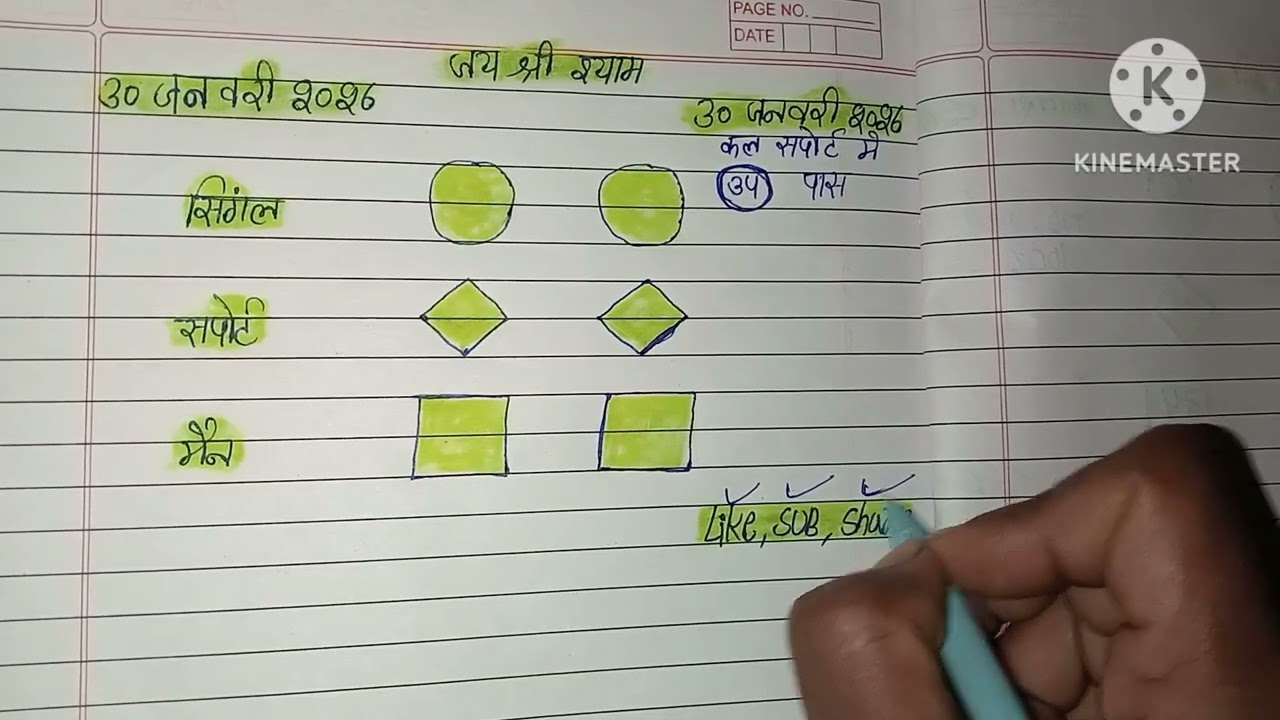 PAGE NO.
DATE
जय श्री श्याम
३० जनवरी २०२६
३० जनवरी २०२६
कल सपोर्ट मे
३५ पास
सिगंल
सपोर्ट
मैन
Like, SUB,
K
KINEMASTER